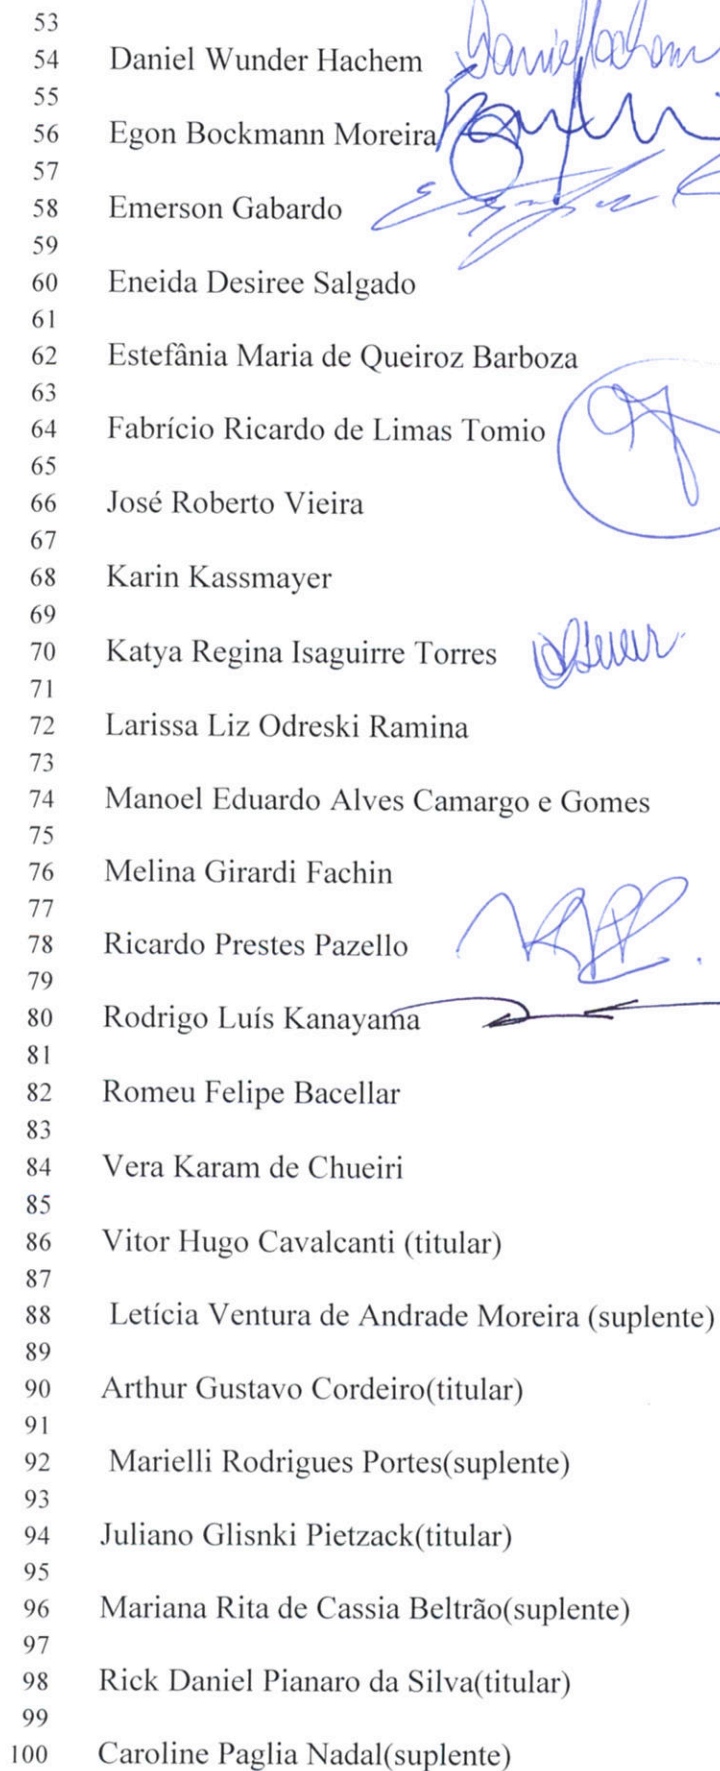 53
54 Daniel Wunder Hachem
55
56 Egon Bockmann Moreira
57
58 Emerson Gabardo
59
60 Eneida Desiree Salgado
61
62 Estefânia Maria de Queiroz Barboza
63
64 Fabrício Ricardo de Limas Tomio
65
66 José Roberto Vieira
67
68 Karin Kassmayer
69
70 Katya Regina Isaguirre Torres
71
72 Larissa Liz Odreski Ramina
73
74 Manoel Eduardo Alves Camargo e Gomes
75
76 Melina Girardi Fachin
77
78 Ricardo Prestes Pazello
79
80 Rodrigo Luís Kanayama
81
82 Romeu Felipe Bacellar
83
84 Vera Karam de Chueiri
85
86 Vitor Hugo Cavalcanti (titular)
87
88 Letícia Ventura de Andrade Moreira (suplente)
89
90 Arthur Gustavo Cordeiro(titular)
91
92 Marielli Rodrigues Portes(suplente)
93
94 Juliano Glisnki Pietzack(titular)
95
96 Mariana Rita de Cassia Beltrão(suplente)
97
98 Rick Daniel Pianaro da Silva(titular)
99
100 Caroline Paglia Nadal(suplente)